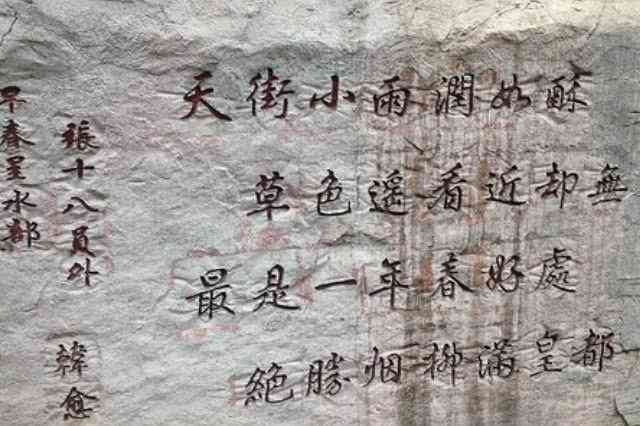 早春呈水部
張十八員外
韓愈
天街小雨潤如酥
草色遥看近却無
最是一年春好處
絶勝烟柳滿皇都